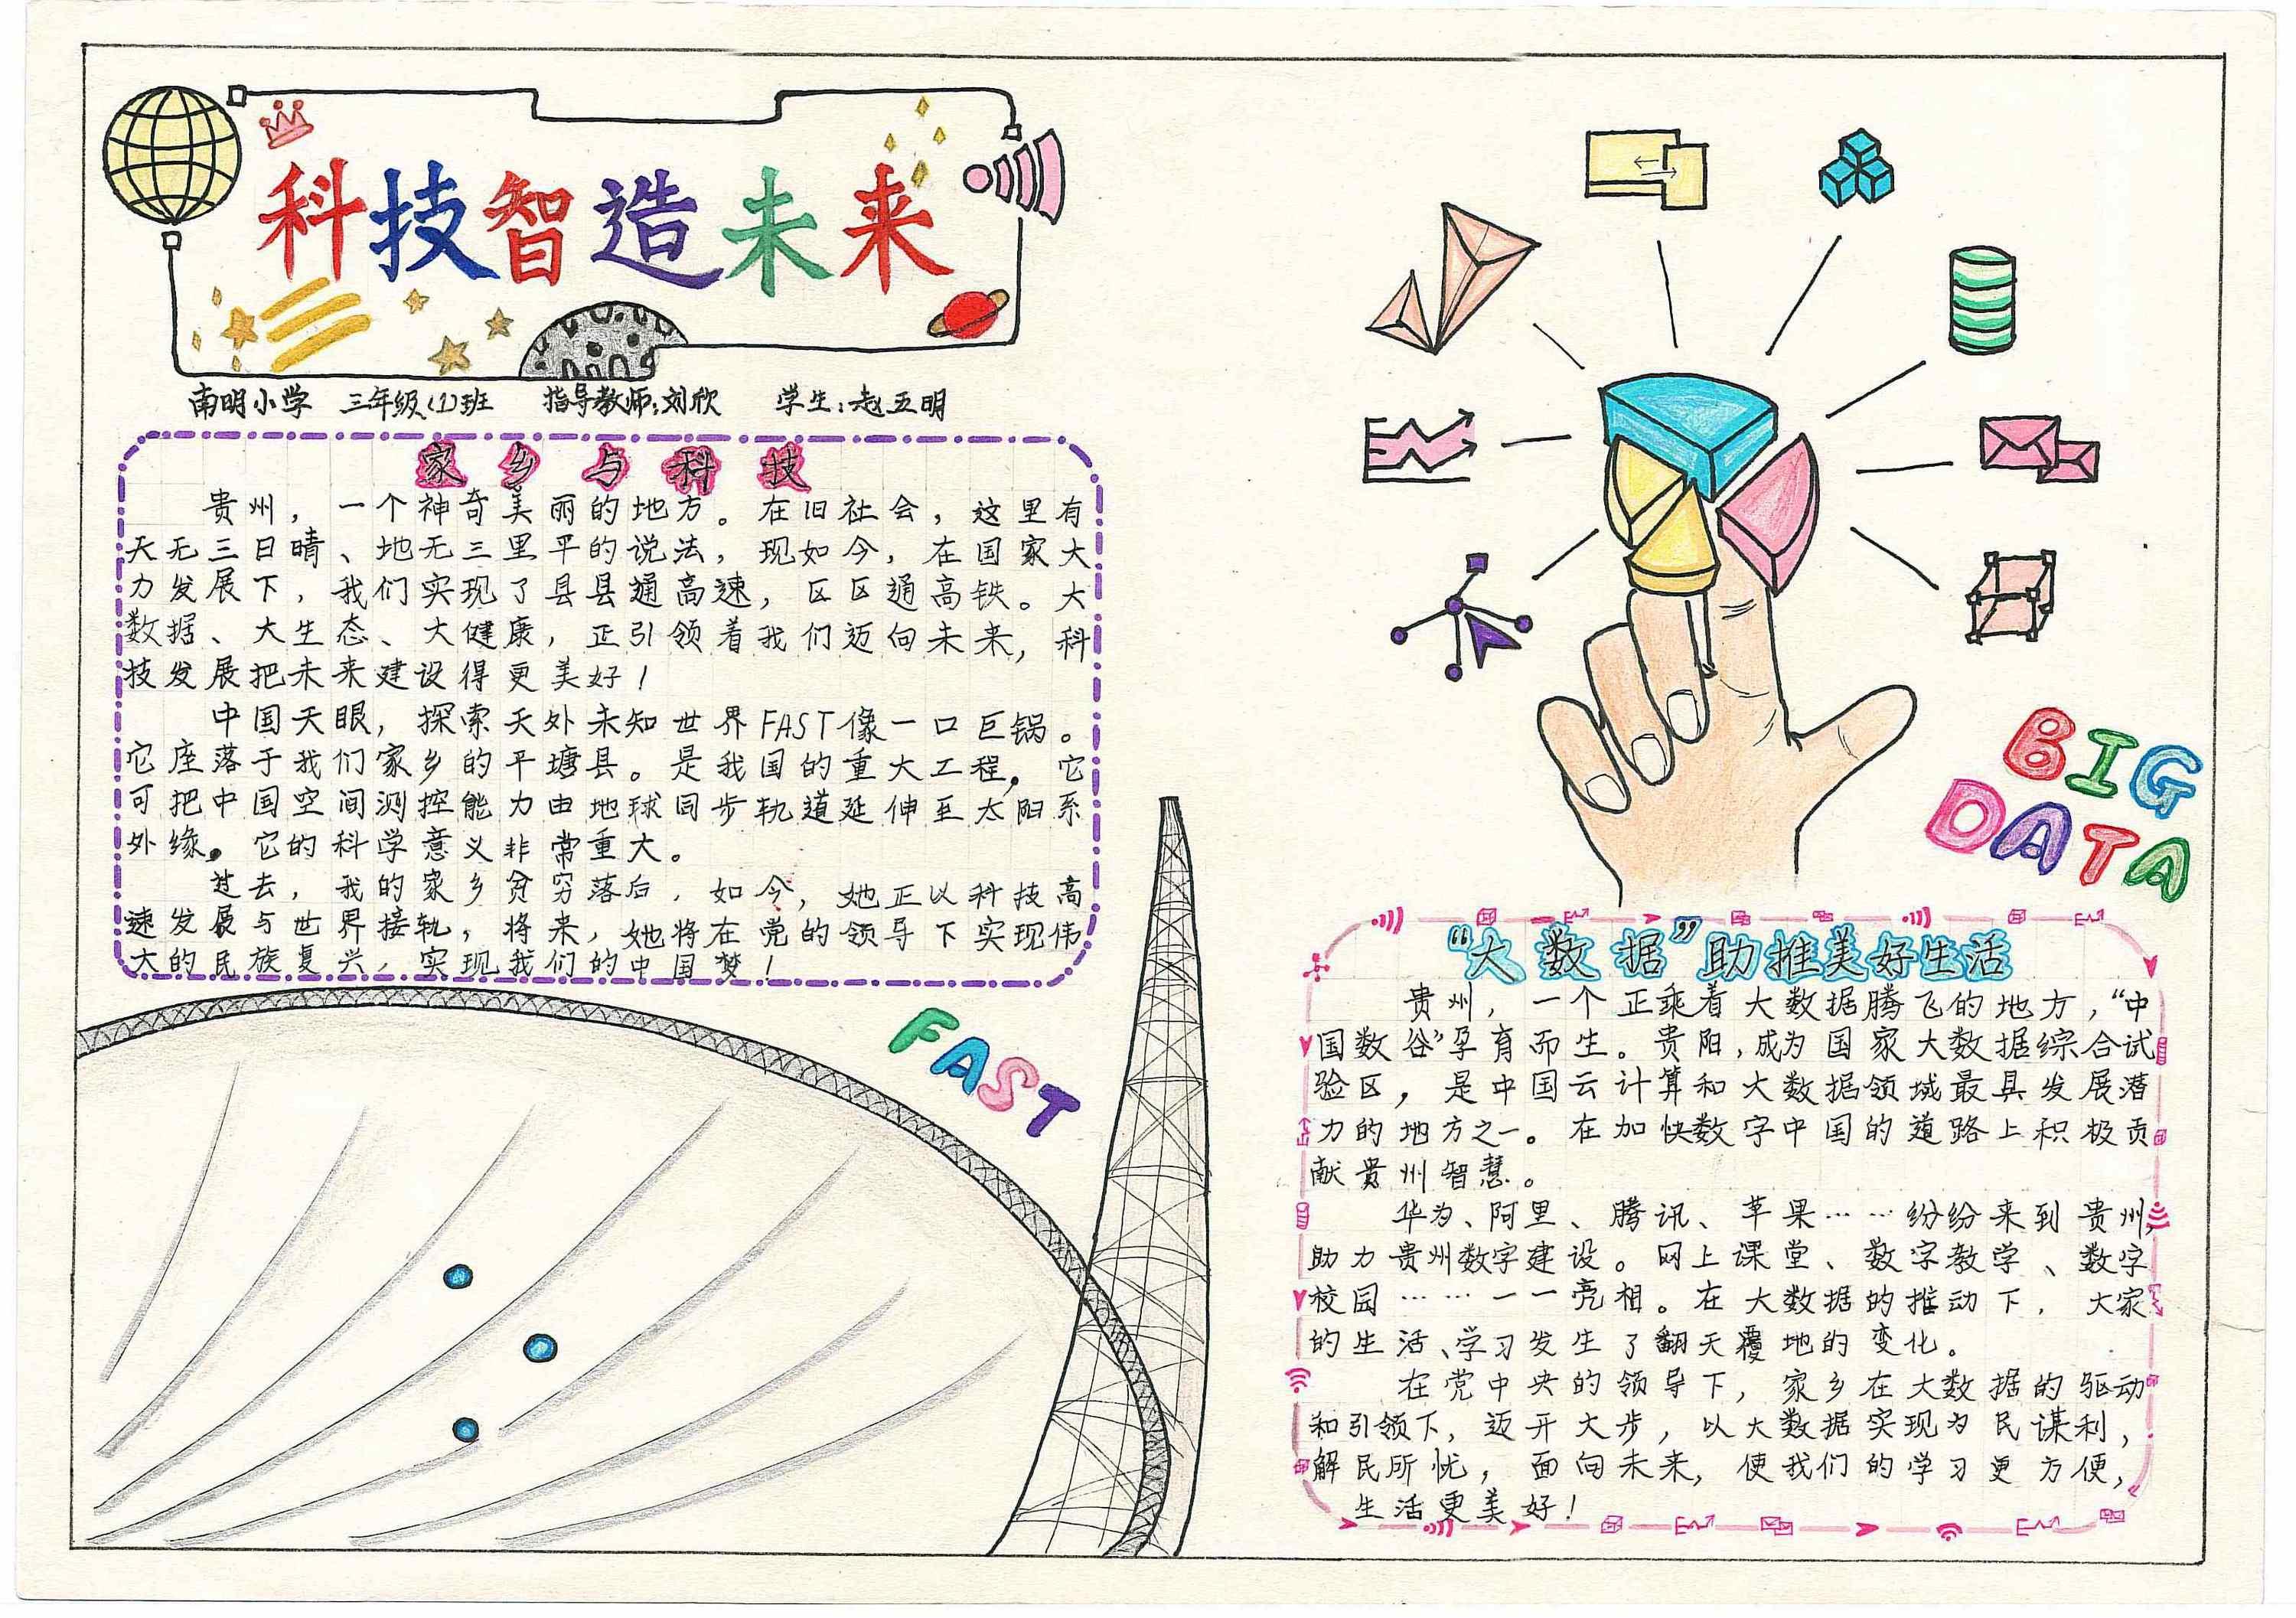 科技智造未来
南明小学 三年级(1)班 指导教师:刘欣 学生:赵五明
家乡与科技
贵州，一个神奇美丽的地方。在旧社会，这里有
天无三日晴、地无三里平的说法，现如今，在国家大
力发展下，我们实现了县县通高速，区区通高铁。大
数据、大生态、大健康，正引领着我们迈向未来，科
技发展把未来建设得更美好！
中国天眼，探索天外未知世界FAST像一口巨锅。
它座落于我们家乡的平塘县。是我国的重大工程。它
可把中国空间测控能力由地球同步轨道延伸至太阳系
外缘。它的科学意义非常重大。
过去，我的家乡贫穷落后，如今，她正以科技高
速发展与世界接轨，将来，她将在党的领导下实现伟
大的民族复兴，实现我们的中国梦！
FAST
BIG
DATA
“大数据”助推美好生活
贵州，一个正乘着大数据腾飞的地方，“中
国数谷”孕育而生。贵阳，成为国家大数据综合试
验区，是中国云计算和大数据领域最具发展潜
力的地方之一。在加快数字中国的道路上积极贡
献贵州智慧。
华为、阿里、腾讯、苹果……纷纷来到贵州，
助力贵州数字建设。网上课堂、数字教学、数字
校园……一一亮相。在大数据的推动下，大家
的生活、学习发生了翻天覆地的变化。
在党中央的领导下，家乡在大数据的驱动
和引领下，迈开大步，以大数据实现为民谋利，
解民所忧，面向未来，使我们的学习更方便，
生活更美好！